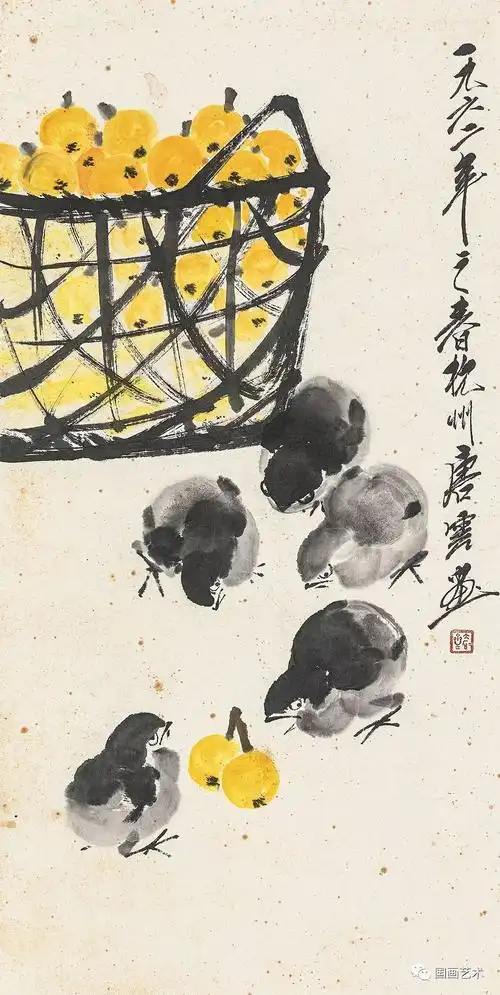 一九六二年之春杭州唐云画
国画艺术